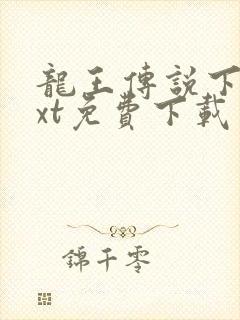 龍王傳説下
xt免費下載
錦千零